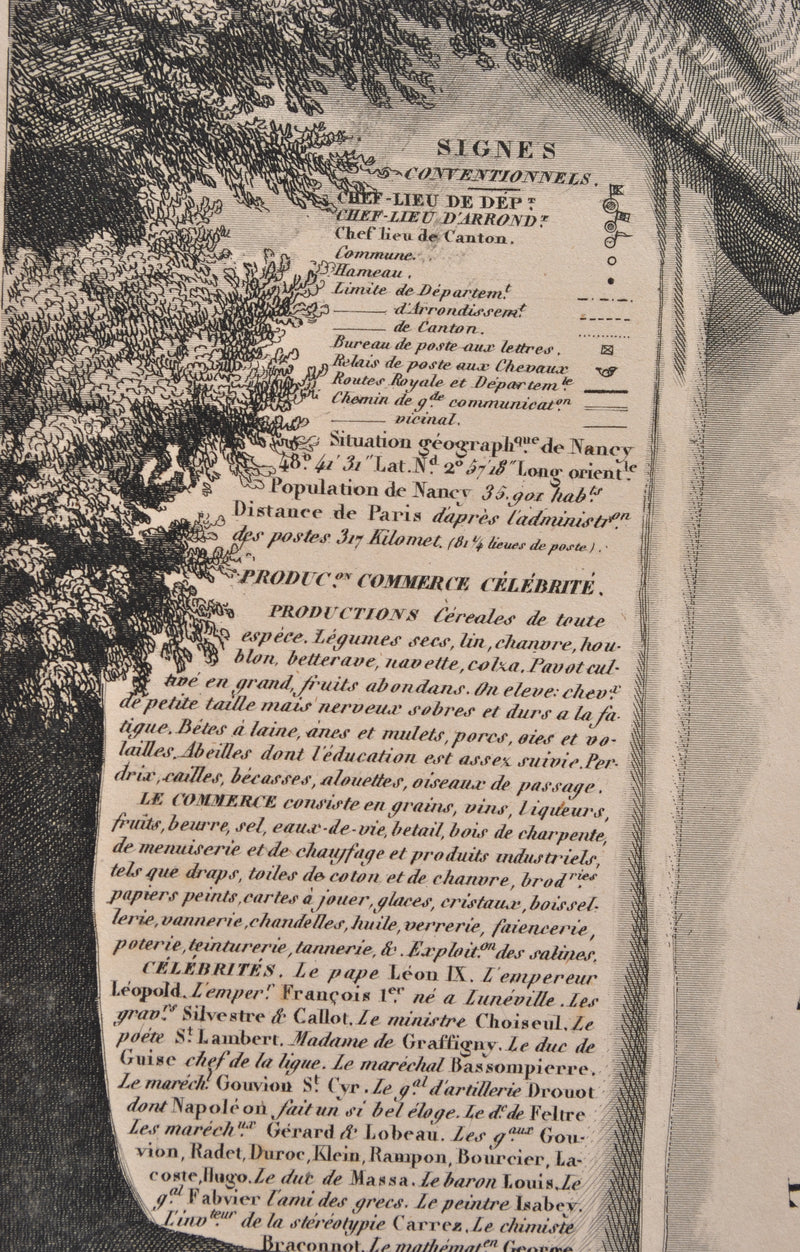 SIGNES
CONVENTIONNELS.
CHEF-LIEU DE DÉPT
CHEF-LIEU D'ARRONDT
Chef lieu de Canton.
Commune.
Hameau.
Limite de Départemt
d'Arrondissemt
de Canton.
Bureau de poste aux lettres.
Relais de poste aux Chevaux
Routes Royale et Départemle
Chemin de gde communicaton
vicinal.
Situation géographque de Nancy
48° 41' 31" Lat. Nd 2° 57' 18" Long orientle
Population de Nancy 35.901 habts
Distance de Paris d'après l'administron
des postes 317 Kilomet. (81 1/4 lieues de poste).
PRODUCon COMMERCE CÉLÉBRITÉ.
PRODUCTIONS Céreales de toute
espéce. Légumes secs, lin, chanvre, hou-
blon, betterave, navette, colza. Pavot cul-
tivé en grand, fruits abondans. On eleve: chevx
de petite taille mais nerveux sobres et durs a la fa-
tigue. Bêtes à laine, anes et mulets, porcs, oies et vo-
lailles, Abeilles dont l'éducation est assez suivie. Per-
drix, cailles, bécasses, alouettes, oiseaux de passage.
LE COMMERCE consiste en grains, vins, liqueurs,
fruits, beurre, sel, eaux-de-vie, betail, bois de charpente,
de menuiserie et de chauffage et produits industriels,
tels que draps, toiles de coton et de chanvre, brodries
papiers peints, cartes à jouer, glaces, cristaux, boissel-
lerie, vannerie, chandelles, huile, verrerie, faiencerie,
poterie, teinturerie, tannerie, &. Exploiton des salines.
CÉLÉBRITÉS. Le pape Léon IX. L'empereur
Léopold. L'emperr François 1er né a Lunéville. Les
gravrs Silvestre & Callot. Le ministre Choiseul. Le
poéte St Lambert. Madame de Graffigny. Le duc de
Guise chef de la ligue. Le maréchal Bassompierre.
Le maréchl Gouvion St Cyr. Le gal d'artillerie Drouot
dont Napoléon fait un si bel éloge. Le dc de Feltre
Les maréchux Gérard & Lobeau. Les gaux Gou-
vion, Radet, Duroc, Klein, Rampon, Bourcier, La-
coste, Hugo. Le duc de Massa. Le baron Louis. Le
gal Fabvier l'ami des grecs. Le peintre Isabey.
L'invteur de la stéréotypie Carrez. Le chimiste
Braconnot. Le mathématen George